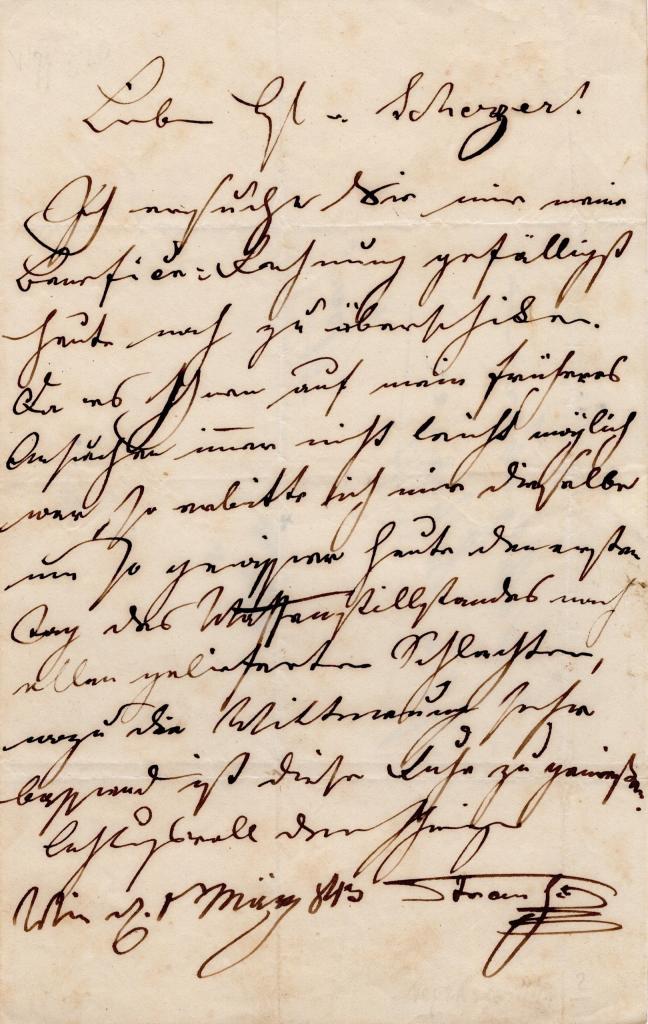 Lieber H. v. Scherzer!
Ich ersuche Sie mir meine
Benefice=Rechnung gefälligst
heute noch zu überschiken.
Da es Ihnen auf mein früheres
Ansuchen immer nicht leicht möglich
war, so erbitte ich mir dieselbe
um so gewisser heute den ersten
Tag des Waffenstillstandes nach
allen gelieferten Schlachten,
wozu die Witterung sehr
passend ist diese Ruhe zu genießen.
Achtungsvoll
Wien d. 1 März 843 Strauß